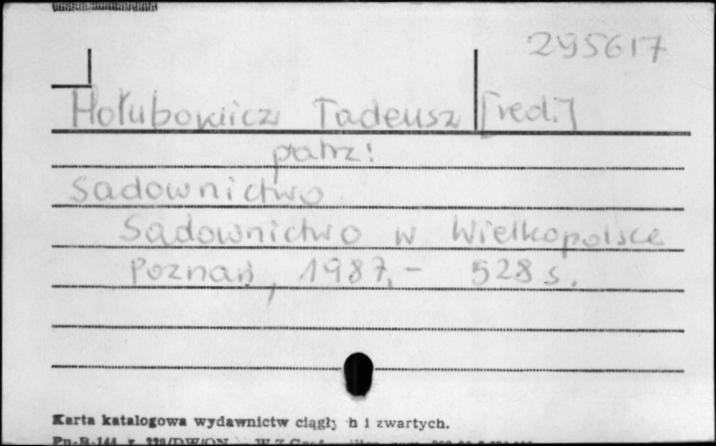 295617
Hołubowicz Tadeusz [red.]
patrz:
Sadownictwo
Sadownictwo w Wielkopolsce
Poznań, 1987.- 528 s.
Karta katalogowa wydawnictw ciągłych i zwartych.